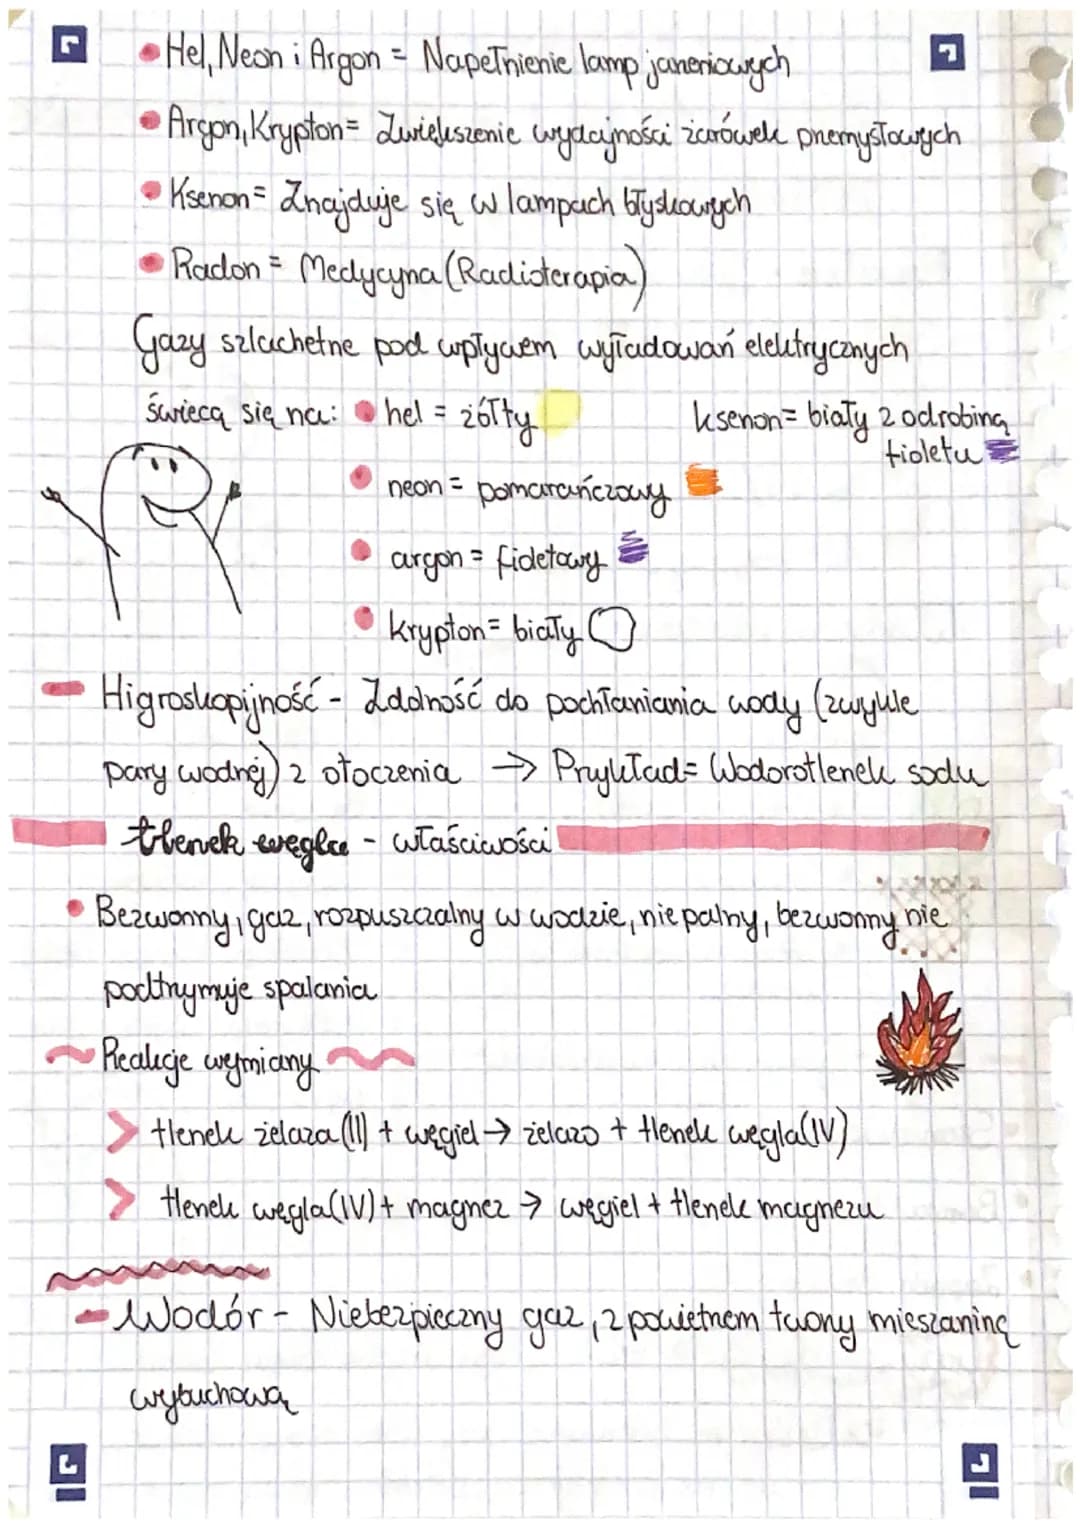 Hel, Neon i Argon = Napełnienie lamp janeriowych
Argon, Krypton = Zwiększenie wydajności żarówek przemysłowych
Ksenon = Znajduje się w lampach błyskowych
Radon = Medycyna (Radioterapia)
Gazy szlachetne pod wpływem wyładowań elektrycznych
świecą się na: hel = żółty
ksenon = biały z odrobiną
fioletu
neon = pomarańczowy
argon = fioletowy
krypton = biały
Higroskopijność - Zdolność do pochłaniania wody (zwykle
pary wodnej) z otoczenia → Przykład = Wodorotlenek sodu
tlenek węgla - właściwości
Bezwonny, gaz, rozpuszczalny w wodzie, niepalny, bezwonny nie
podtrzymuje spalania
Reakcje wymiany
tlenek żelaza (II) + węgiel → żelazo + tlenek węgla (IV)
tlenek węgla (IV) + magnez → węgiel + tlenek magnezu
Wodór - Niebezpieczny gaz, z powietrzem tworzy mieszaninę
wybuchową